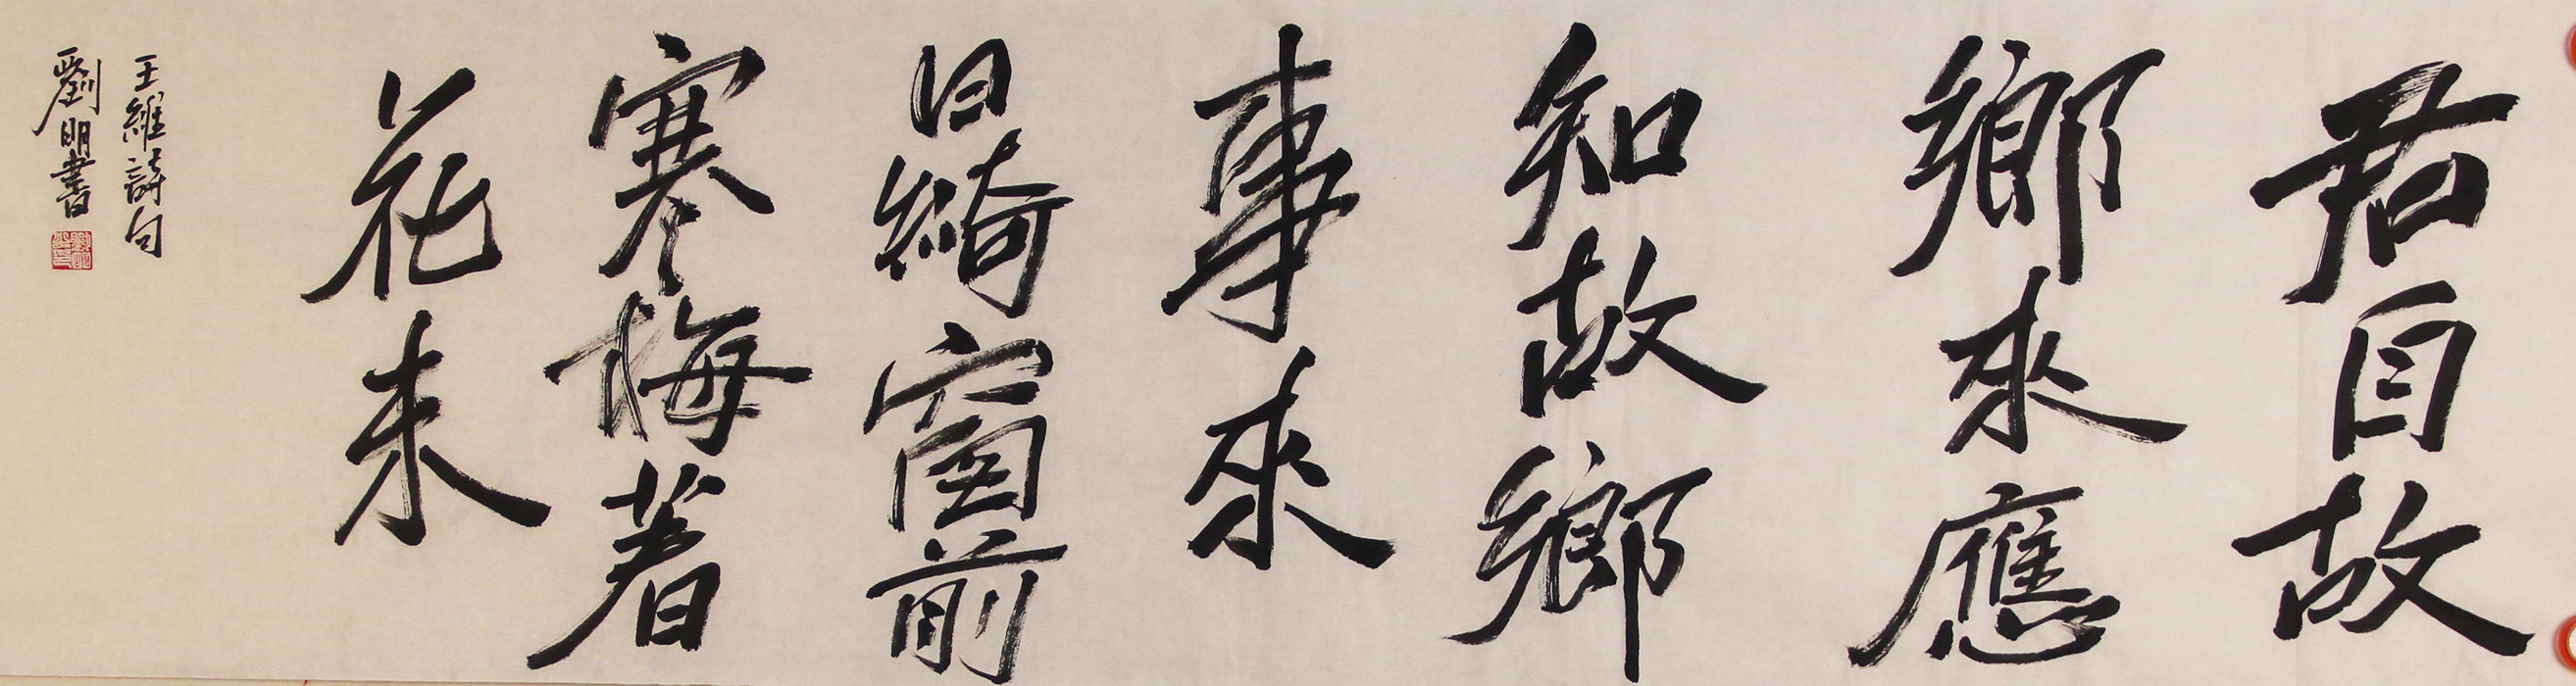 君自故
鄉來應
知故鄉
事來
日綺窗前
寒梅著
花未
王維詩句
劉明書